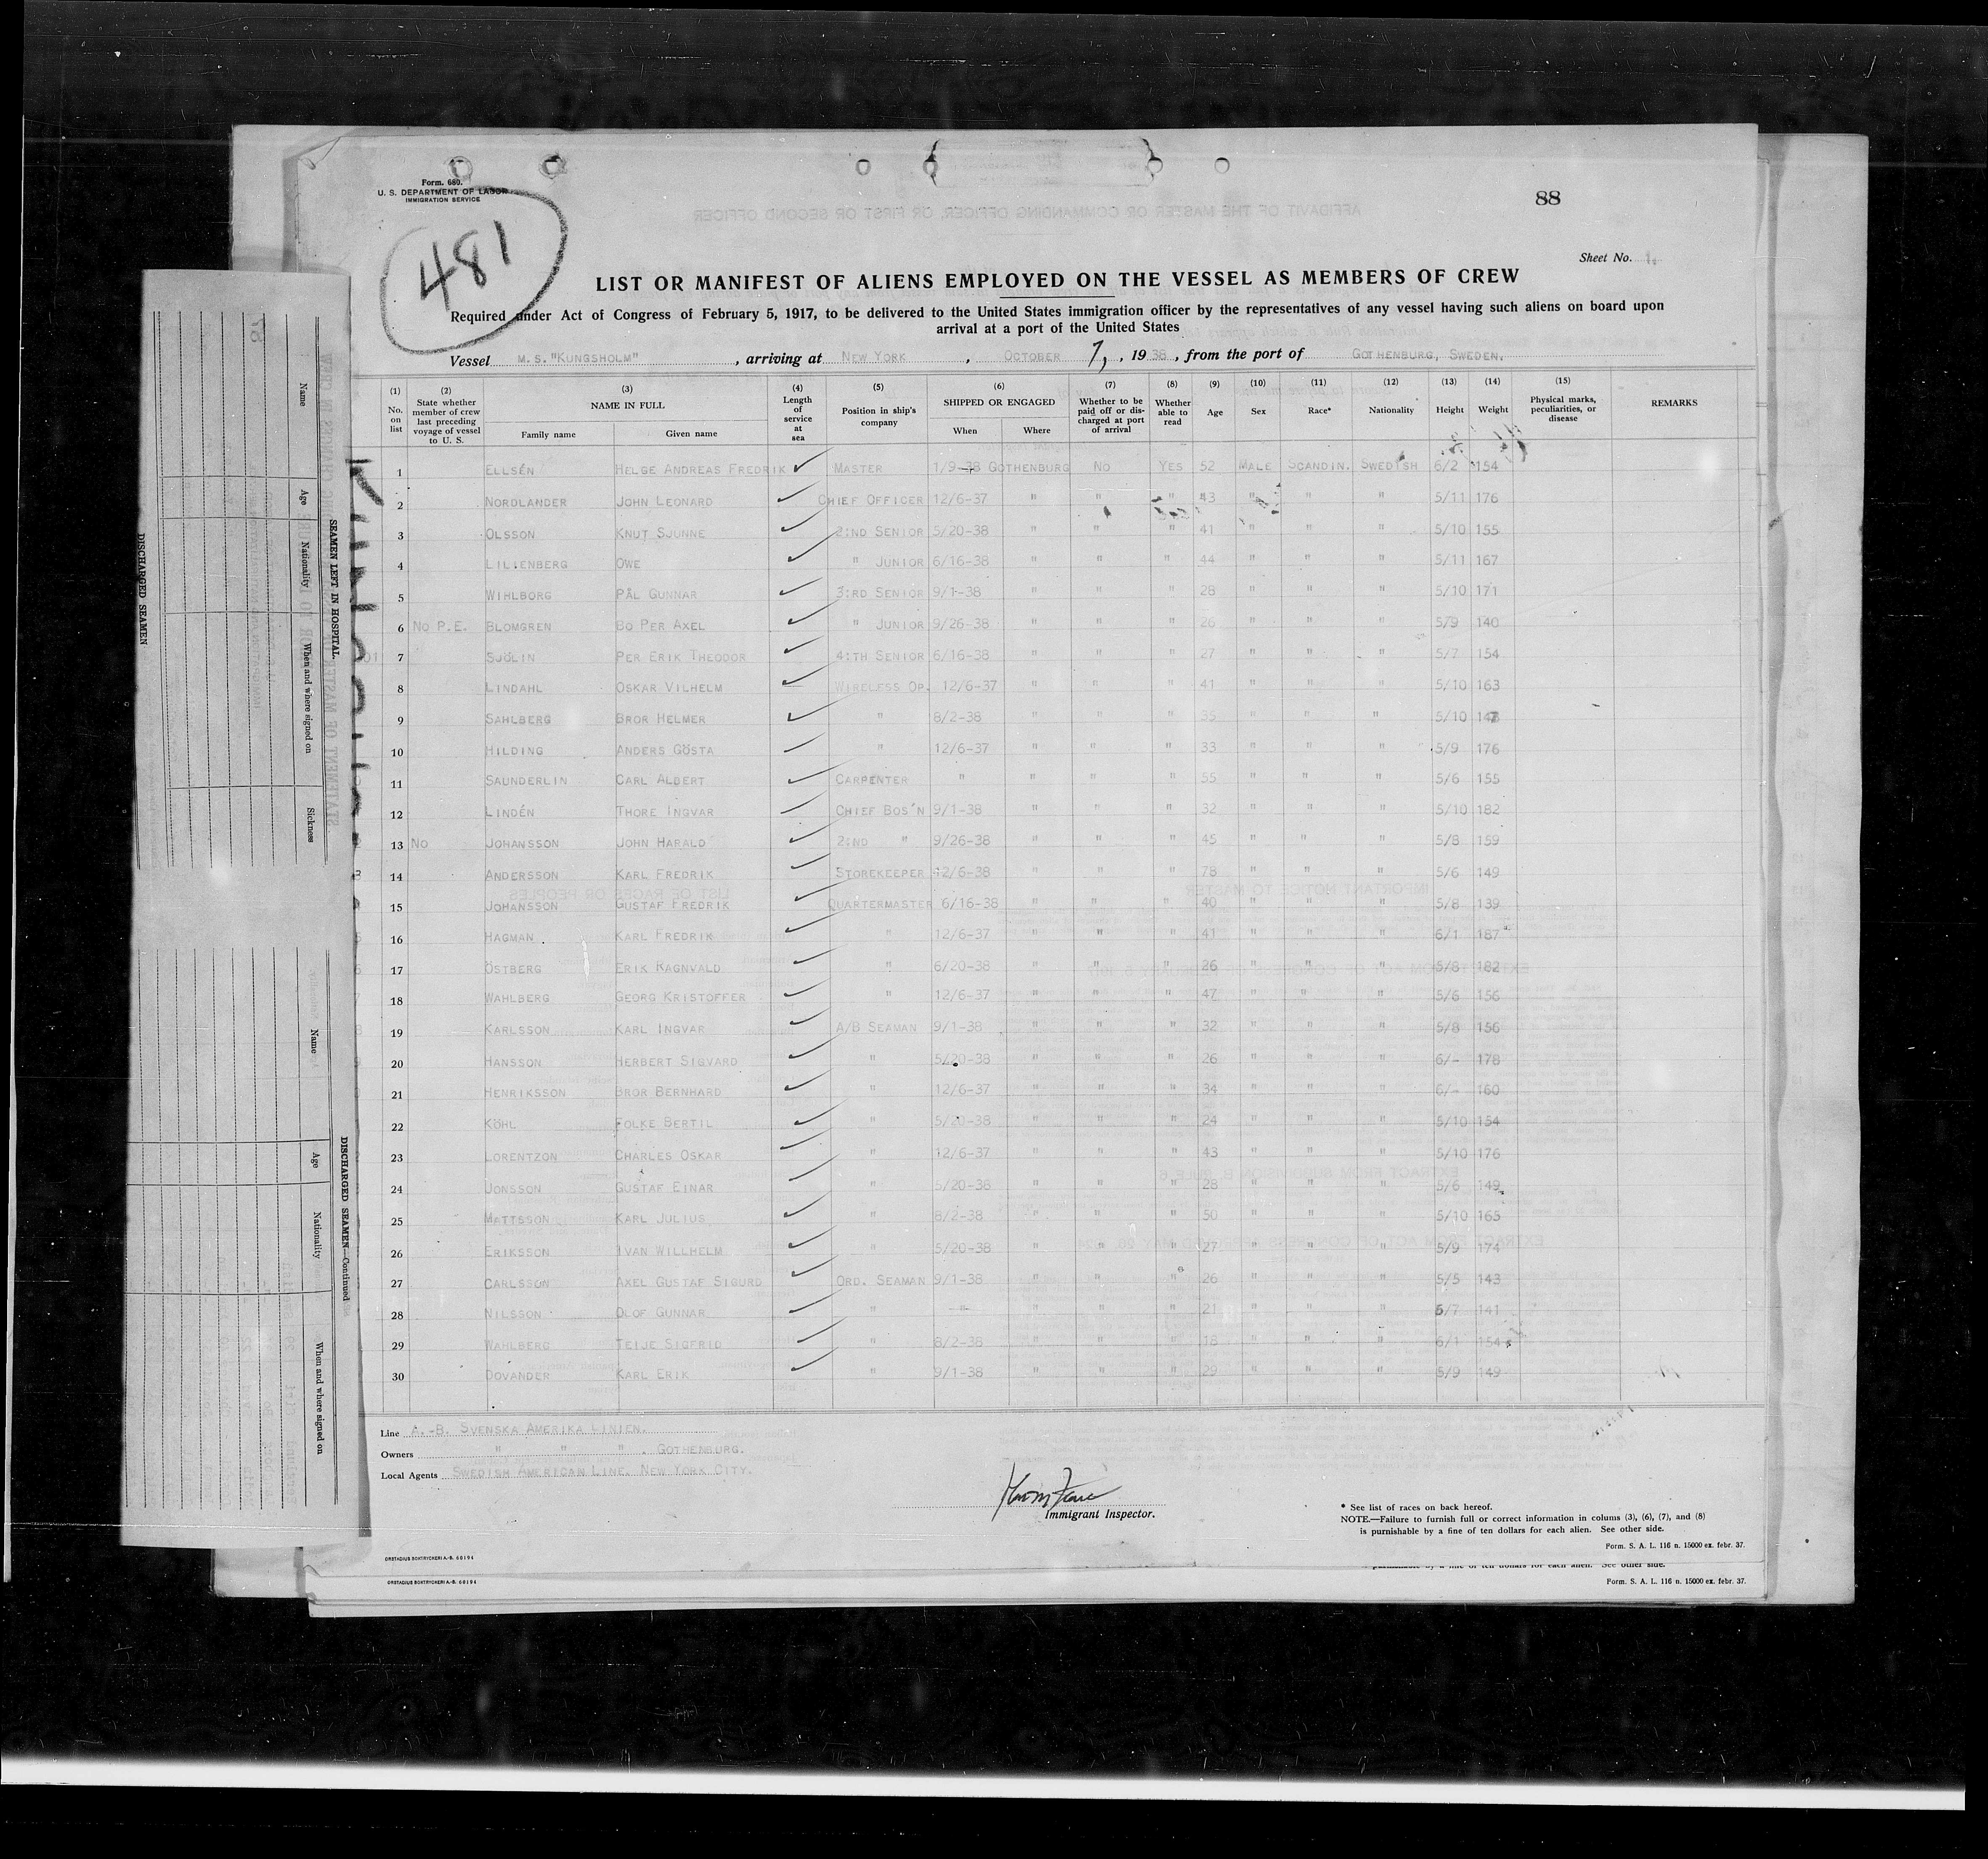 Form. 680.
U. S. DEPARTMENT OF LABOR
IMMIGRATION SERVICE
481
88
Sheet No. 1.
LIST OR MANIFEST OF ALIENS EMPLOYED ON THE VESSEL AS MEMBERS OF CREW
Required under Act of Congress of February 5, 1917, to be delivered to the United States immigration officer by the representatives of any vessel having such aliens on board upon
arrival at a port of the United States
Vessel M.S."KUNGSHOLM", arriving at NEW YORK, OCTOBER 7, , 1938, from the port of GOTHENBURG, SWEDEN.
(1) No. on list (2) State whether member of crew last preceding voyage of vessel to U. S. (3) NAME IN FULL Family name Given name (4) Length of service at sea (5) Position in ship's company (6) SHIPPED OR ENGAGED When Where (7) Whether to be paid off or discharged at port of arrival (8) Whether able to read (9) Age (10) Sex (11) Race* (12) Nationality (13) Height (14) Weight (15) Physical marks, peculiarities, or disease REMARKS
1 ELLSÉN HELGE ANDREAS FREDRIK MASTER 1/9-38 GOTHENBURG NO YES 52 MALE SCANDIN. SWEDISH 6/2 154
2 NORDLANDER JOHN LEONARD CHIEF OFFICER 12/6-37 " " " 43 " " " 5/11 176
3 OLSSON KNUT SJUNNE 2:ND SENIOR 5/20-38 " " " 41 " " " 5/10 155
4 LILJENBERG OWE " JUNIOR 6/16-38 " " " 44 " " " 5/11 167
5 WIHLBORG PÅL GUNNAR 3:RD SENIOR 9/1-38 " " " 28 " " " 5/10 171
6 NO P.E. BLOMGREN BO PER AXEL " JUNIOR 9/26-38 " " " 26 " " " 5/9 140
7 SJÖLIN PER ERIK THEODOR 4:TH SENIOR 6/16-38 " " " 27 " " " 5/7 154
8 LINDAHL OSKAR VILHELM WIRELESS OP. 12/6-37 " " " 41 " " " 5/10 163
9 SAHLBERG BROR HELMER " 8/2-38 " " " 35 " " " 5/10
10 HILDING ANDERS GÖSTA " 12/6-37 " " " 33 " " " 5/9 176
11 SAUNDERLIN CARL ALBERT CARPENTER " " " " 55 " " " 5/6 155
12 LINDÉN THORE INGVAR CHIEF BOS'N 9/1-38 " " " 32 " " " 5/10 182
13 NO JOHANSSON JOHN HARALD 2:ND " 9/26-38 " " " 45 " " " 5/8 159
14 ANDERSSON KARL FREDRIK STOREKEEPER 12/6-38 " " " 78 " " " 5/6 149
15 JOHANSSON GUSTAF FREDRIK QUARTERMASTER 6/16-38 " " " 40 " " " 5/8 139
16 HAGMAN KARL FREDRIK " 12/6-37 " " " 41 " " " 6/1 187
17 ÖSTBERG ERIK RAGNVALD " 6/20-38 " " " 26 " " " 5/8 182
18 WAHLBERG GEORG KRISTOFFER " 12/6-37 " " " 47 " " " 5/6 156
19 KARLSSON KARL INGVAR A/B SEAMAN 9/1-38 " " " 32 " " " 5/8 156
20 HANSSON HERBERT SIGVARD " 5/20-38 " " " 26 " " " 6/- 178
21 HENRIKSSON BROR BERNHARD " 12/6-37 " " " 34 " " " 6/- 160
22 KÖHL FOLKE BERTIL " 5/20-38 " " " 24 " " " 5/10 154
23 LORENTZON CHARLES OSKAR " 12/6-37 " " " 43 " " " 5/10 176
24 JONSSON GUSTAF EINAR " 5/20-38 " " " 28 " " " 5/6 149
25 MATTSSON KARL JULIUS " 8/2-38 " " " 50 " " " 5/10 165
26 ERIKSSON IVAN WILLHELM " 5/20-38 " " " 27 " " " 5/9 174
27 CARLSSON AXEL GUSTAF SIGURD ORD. SEAMAN 9/1-38 " " " 26 " " " 5/5 143
28 NILSSON OLOF GUNNAR " -"- " " " 21 " " " 5/7 141
29 WAHLBERG TEIJE SIGFRID " 8/2-38 " " " 18 " " " 6/1 154
30 DOVANDER KARL ERIK " 9/1-38 " " " 29 " " " 5/9 149
Line A.-B. SVENSKA AMERIKA LINIEN.
Owners " " " . GOTHENBURG.
Local Agents SWEDISH AMERICAN LINE. NEW YORK CITY.
Immigrant Inspector.
* See list of races on back hereof.
NOTE.—Failure to furnish full or correct information in colums (3), (6), (7), and (8)
is punishable by a fine of ten dollars for each alien. See other side.
Form. S. A. L. 116 n. 15000 ex. febr. 37.
ORSTADIUS BOKTRYCKERI A.-B. 60194
ORSTADIUS BOKTRYCKERI A.-B. 60194
Form. S. A. L. 116 n. 15000 ex. febr. 37.
SEAMEN LEFT IN HOSPITAL.
Name Age Nationality When and where signed on Sickness
DISCHARGED SEAMEN
DISCHARGED SEAMEN—Continued
Name Age Nationality When and where signed on